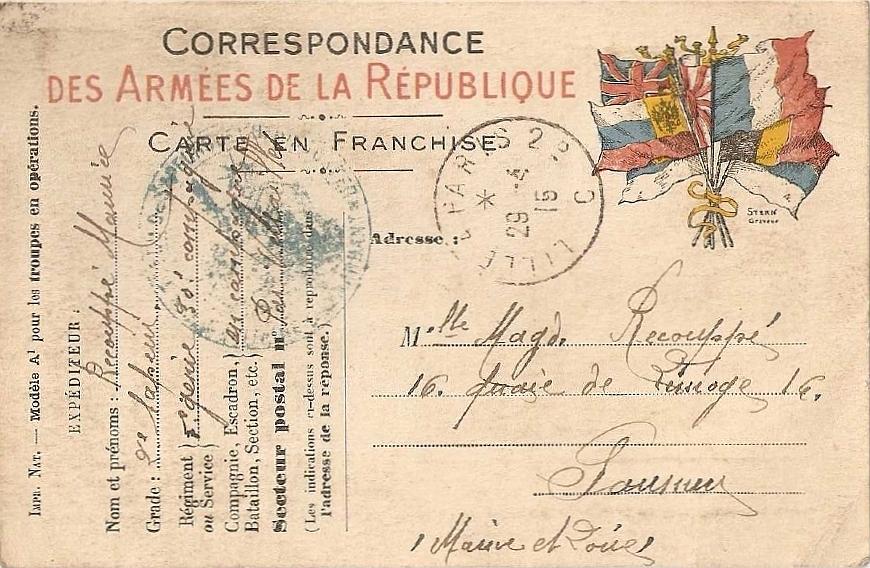 CORRESPONDANCE
DES ARMÉES DE LA RÉPUBLIQUE
CARTE EN FRANCHISE
STERN
Graveur
PARIS 2
LILLE
29 -4
15
R. P.
C
Adresse :
Mlle Magd. Recouppé
16. quaie de Limoge 16.
Saumur
Maine et Loire
IMPR. NAT. — Modèle A1 pour les troupes en opérations.
EXPÉDITEUR :
Nom et prénoms : Recouppé Maurice
Grade : 2e Sapeur
Régiment ou Service) génie compagnie
Compagnie, Escadron,) en campagne
Bataillon, Section, etc.)
Secteur postal n° Par
(Les indications ci-dessus sont à reproduire dans
l'adresse de la réponse.)